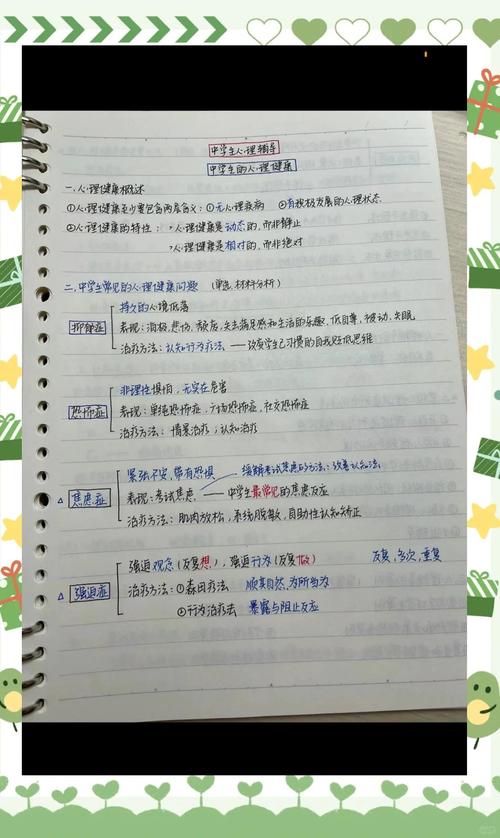 中学生心理辅导
中学生的心理健康
一.心理健康概述
①心理健康至少要包含两层含义:①无心理疾病 ②有积极发展的心理状态
②心理健康的特性:›心理健康是动态的,而非静止
›心理健康是相对的,而非绝对
二.中学生常见的心理健康问题 (单选.材料分析)
持久的心境低落
抑郁症 表现:消极,悲伤,颓废,失去满足感和生活的乐趣,低自尊,被动,失眠
治疗方法:认知行为疗法——改变学生已习惯的自我贬低思维
非理性惧怕,无实在危害
恐怖症 表现:单纯恐怖症,广场恐怖症,社交恐怖症
治疗方法:情景治疗;认知治疗
紧张不安,带有恐惧 缓解考试焦虑的方法:改善认知法
△ 焦虑症 表现:考试焦虑——中学生最常见的焦虑反应
治疗方法:肌肉放松,系统脱敏,自助性认知矫正
强迫观念(反复想),强迫行为(反复做) 反复,多次,重复
△ 强迫症 治疗方法:①森田疗法 顺其自然,为所当为
②行为治疗法 暴露与阻止反应